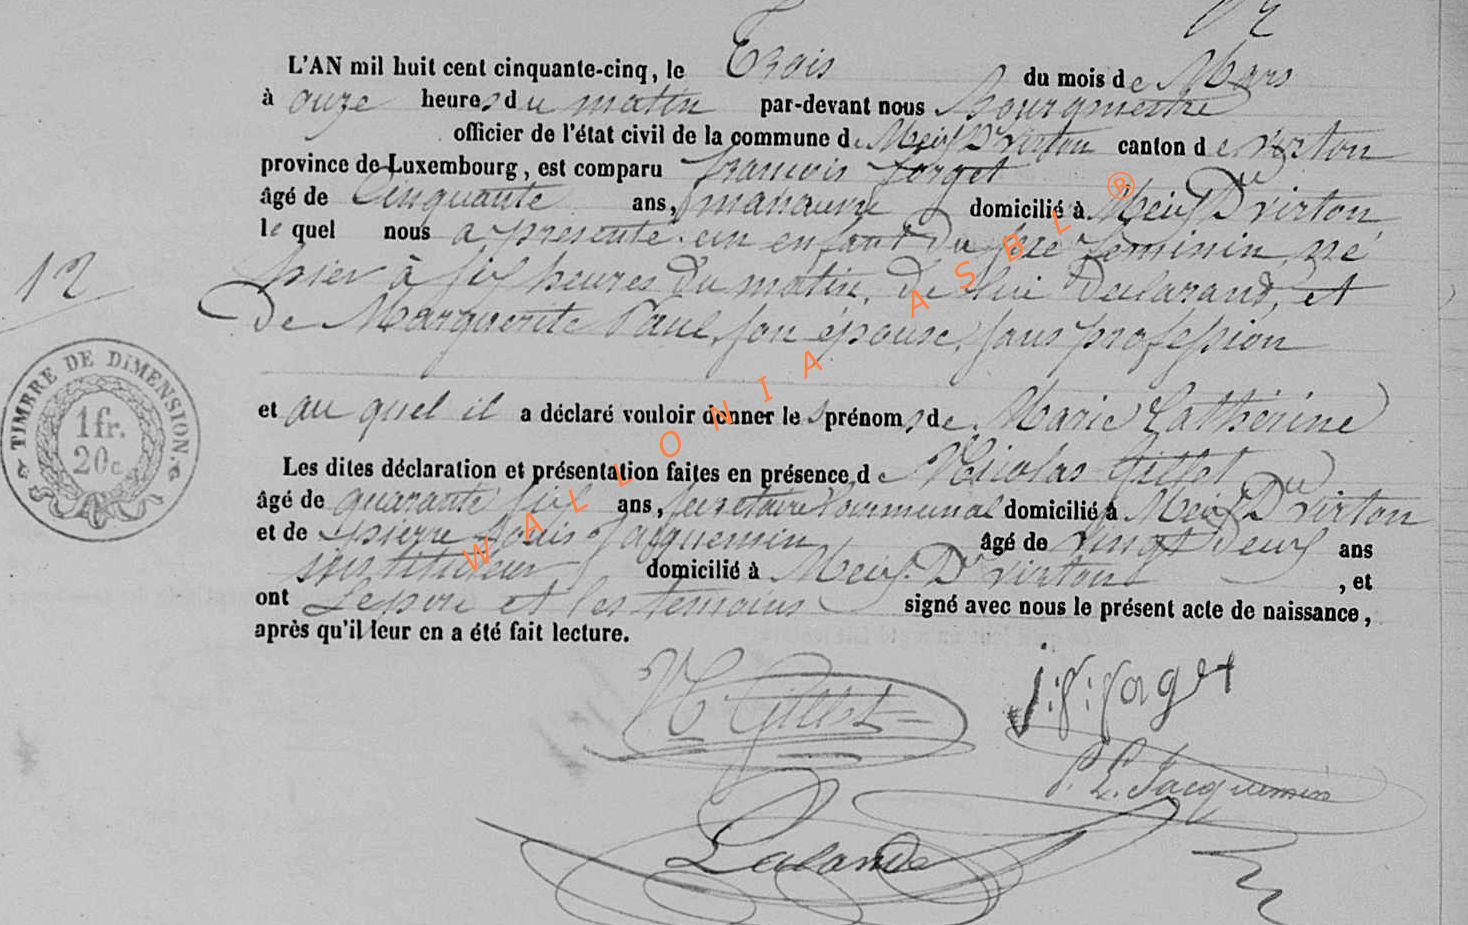 12
L'AN mil huit cent cinquante-cinq, le Trois du mois de Mars
à onze heures du matin par-devant nous Bourgmestre
officier de l'état civil de la commune de Meix Dt virton canton de virton
province de Luxembourg, est comparu francois forget
âgé de Cinquante ans, manœuvre domicilié à Meix Dt virton
le quel nous a présenté un enfant du sexe feminin, né
hier à six heures du matin, de lui Déclarand, et
12
de Marguerite Paul, son épouse, sans profession
et au quel il a déclaré vouloir donner les prénoms de Marie Catherine
Les dites déclaration et présentation faites en présence de Nicolas Gillet
âgé de quarante six ans, secretaire Communal domicilié à Meix Dt virton
et de pierre Louis Jacquemin âgé de vingt deux ans
instituteur domicilié à Meix Dt virton, et
ont Le père et les temoins signé avec nous le présent acte de naissance,
après qu'il leur en a été fait lecture.
TIMBRE DE DIMENSION.
1fr.
20c
WALLONIA ASBL ®
N Gillet
j:f:forget
P. L. Jacquemin
Lalande